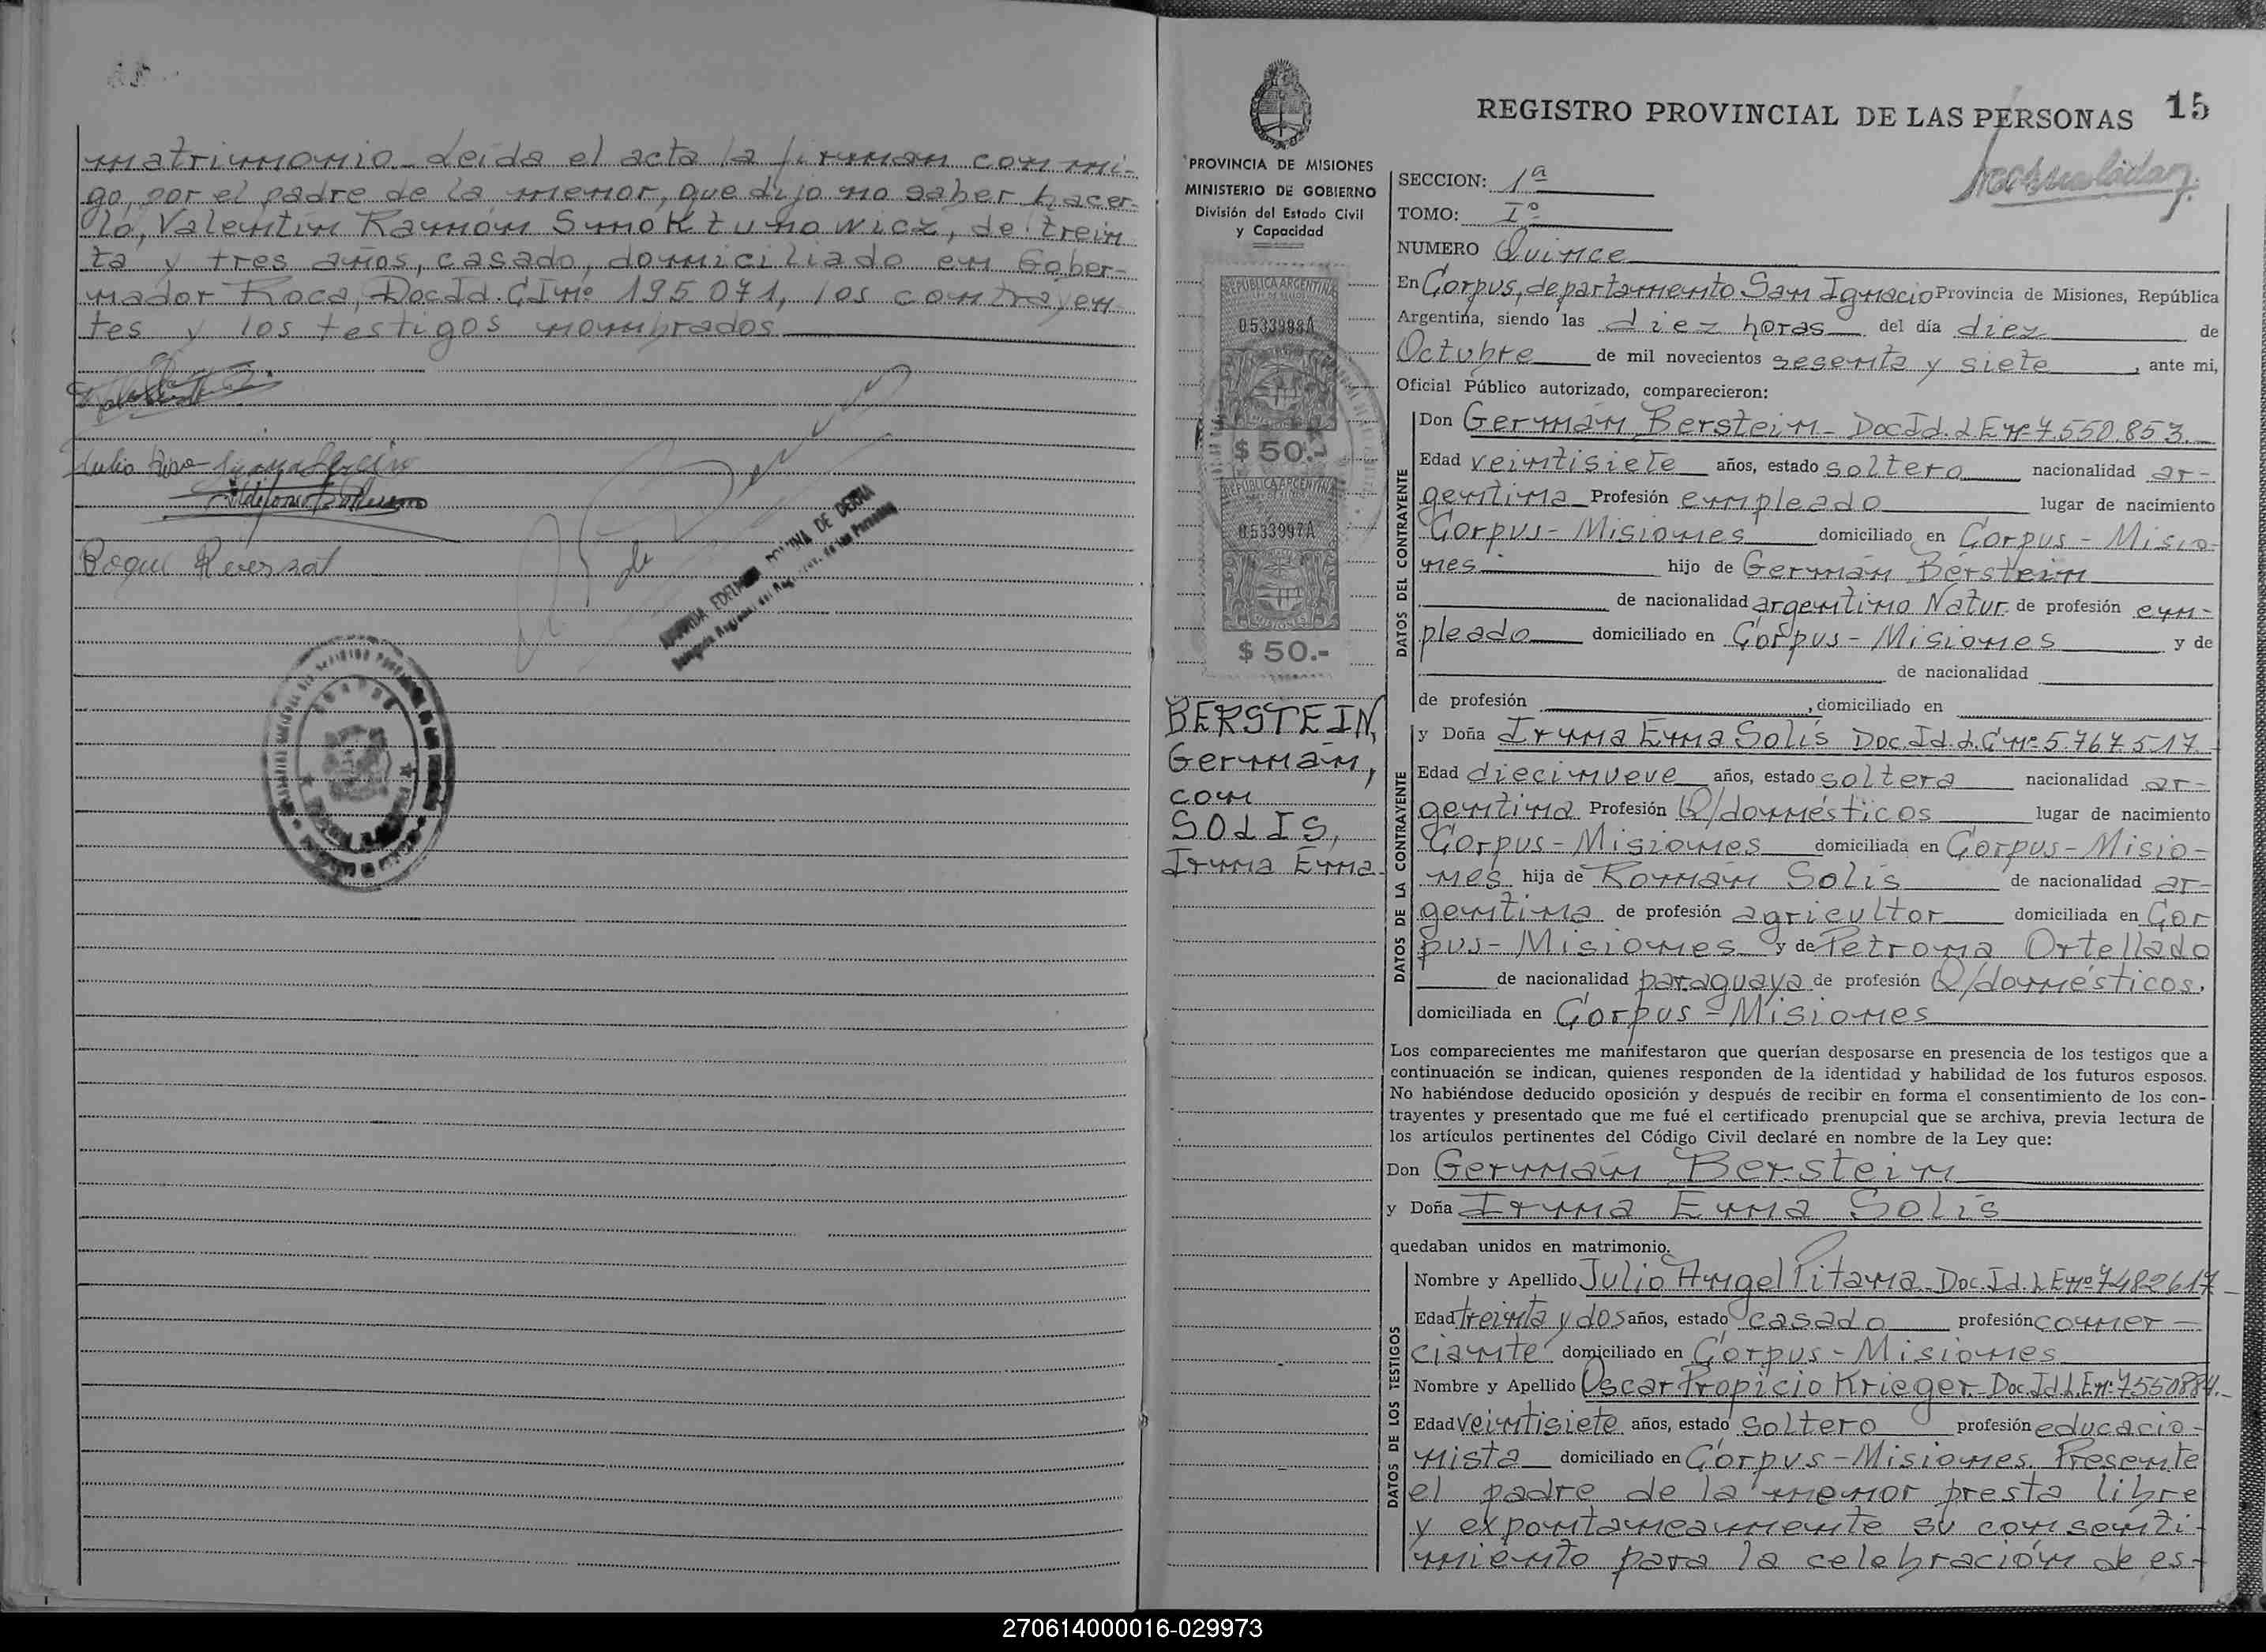 matrimonio_ Leída el acta la firman conmi-
go, por el padre de la menor, que dijo no saber hacer-
lo, Valentin Ramón Smoktunowicz, de trein
ta y tres años, casado, domiciliado en Gober-
nador Roca, Doc Id. CI nº 195071, los contrayen
tes y los testigos nombrados
Roque Reverzat
REGISTRO PROVINCIAL DE LAS PERSONAS 15
PROVINCIA DE MISIONES
MINISTERIO DE GOBIERNO
División del Estado Civil
y Capacidad
REPUBLICA ARGENTINA
0533998A
$ 50.-
REPUBLICA ARGENTINA
0533997A
MISIONES
$ 50.-
BERSTEIN,
Germán,
con
SOLIS,
Irma Ema
SECCION: 1ª
TOMO: Iº
NUMERO Quince
En Corpus, departamento San Ignacio Provincia de Misiones, República
Argentina, siendo las diez horas del día diez de
Octubre de mil novecientos sesenta y siete, ante mi,
Oficial Público autorizado, comparecieron:
DATOS DEL CONTRAYENTE
Don Germán Berstein - Doc Id. L E nº 7.550.853
Edad veintisiete años, estado soltero nacionalidad ar-
gentina Profesión empleado lugar de nacimiento
Corpus - Misiones domiciliado en Corpus - Misio-
nes hijo de Germán Berstein
de nacionalidad argentino Natur. de profesión em-
pleado domiciliado en Corpus - Misiones y de
de nacionalidad
de profesión , domiciliado en
DATOS DE LA CONTRAYENTE
y Doña Irma Ema Solis Doc. Id. L.C nº 5.767517
Edad diecinueve años, estado soltera nacionalidad ar-
gentina Profesión Q/domésticos lugar de nacimiento
Corpus - Misiones domiciliada en Corpus - Misio-
nes hija de Román Solis de nacionalidad ar-
gentina de profesión agricultor domiciliada en Cor
pus - Misiones y de Petrona Ortellado
de nacionalidad paraguaya de profesión Q/domésticos,
domiciliada en Corpus - Misiones
Los comparecientes me manifestaron que querían desposarse en presencia de los testigos que a
continuación se indican, quienes responden de la identidad y habilidad de los futuros esposos.
No habiéndose deducido oposición y después de recibir en forma el consentimiento de los con-
trayentes y presentado que me fué el certificado prenupcial que se archiva, previa lectura de
los artículos pertinentes del Código Civil declaré en nombre de la Ley que:
Don Germán Berstein
y Doña Irma Ema Solis
quedaban unidos en matrimonio.
DATOS DE LOS TESTIGOS
Nombre y Apellido Julio Angel Pitana - Doc. Id. L E nº 7482617
Edad treinta y dos años, estado casado profesión comer-
ciante domiciliado en Corpus - Misiones
Nombre y Apellido Oscar Propicio Krieger - Doc. Id L. E nº 7550884.
Edad veintisiete años, estado soltero profesión educacio-
nista domiciliado en Corpus - Misiones. Presente
el padre de la menor presta libre
y expontaneamente su consenti-
miento para la celebración de es-
270614000016-029973